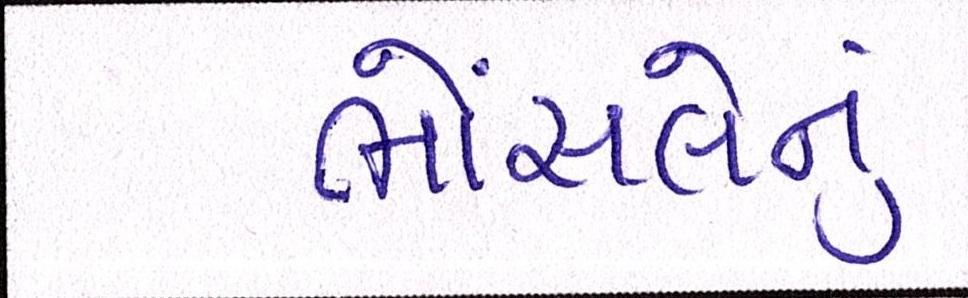 ભોંસલેનું